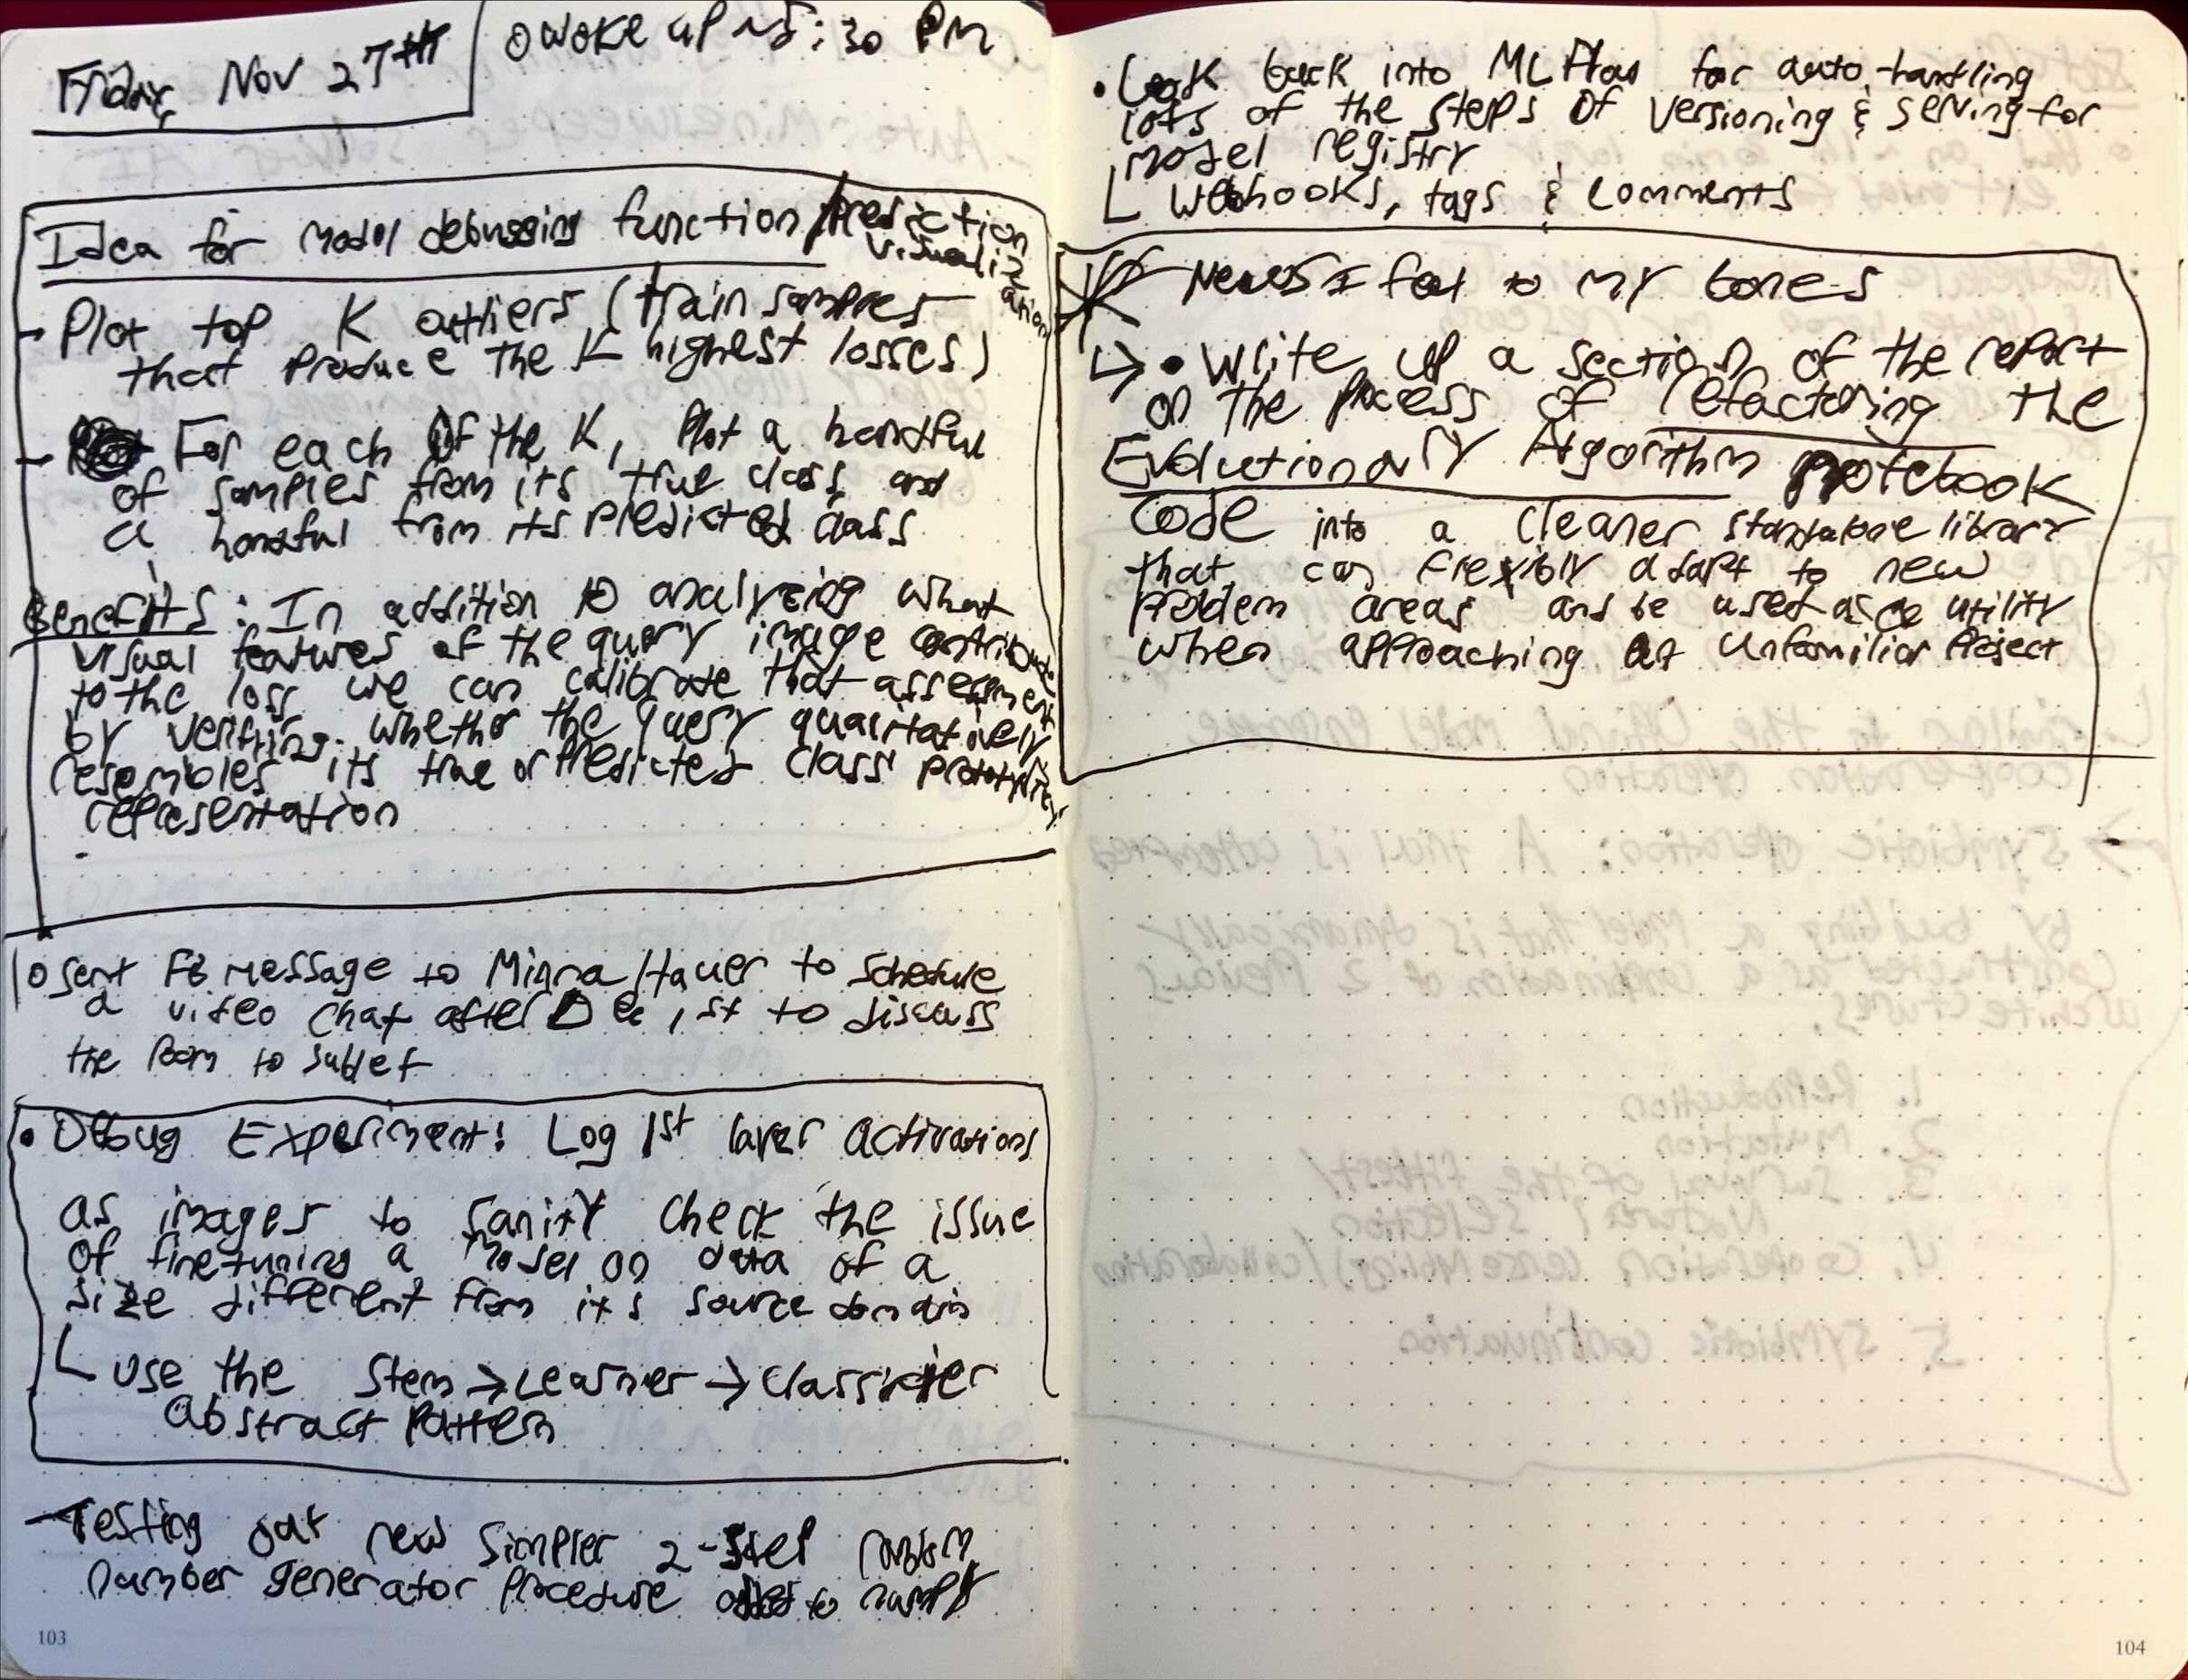 Friday Nov 27TH
Woke up ~5:30 PM
Idea for model debugging function/prediction
visualization
- Plot top K outliers (train samples
that produce the K highest losses)
- For each of the K, Plot a handful
of samples from its true class and
a handful from its predicted class
Benefits: In addition to analyzing what
visual features of the query image contribute
to the loss we can calibrate that assessment
by verifying whether the query qualitatively
resembles its true or predicted class
representation
Sent FB message to to schedule
a video chat after Dec 1st to discuss
the Room to sublet
• Debug Experiment: Log 1st layer activations
as images to sanity check the issue
of finetuning a model on data of a
size different from its source domain
L use the Stem → Learner → classifier
abstract pattern
- Testing out new simpler 2-step random
number generator procedure to numpy
103
• Look back into ML Flow for auto-handling
lots of the steps of versioning & serving for
model registry
L Webhooks, tags & comments
I feel to my bones
↳ • Write up a section of the report
on the process of refactoring the
Evolutionary Algorithm notebook
code into a cleaner standalone library
that can flexibly adapt to new
problem areas and be used as a utility
when approaching an unfamiliar project
104